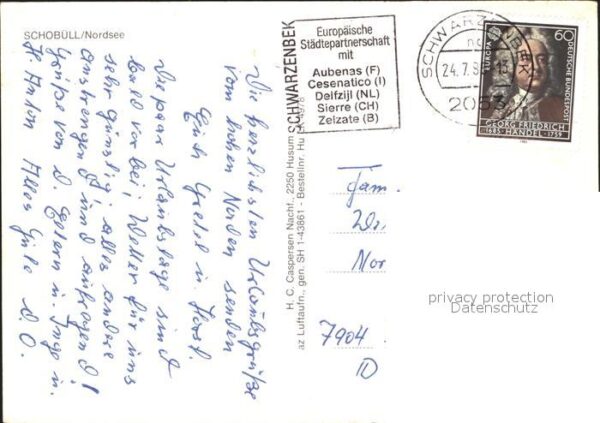 SCHOBÜLL/Nordsee
Die herzlichsten Urlaubsgrüße
vom hohen Norden senden
Euch Gretel u. Horst.
Die paar Urlaubstage sind
bald vorbei; Wetter für uns
sehr günstig; alles andere
anstrengend und aufregend!
Grüße von d. Eltern u. Inge u.
H. Anton Alles Gute d. O.
H. C. Caspersen Nachf., 2250 Husum
az Luftaufn., gen. SH 1-43861 - Bestellnr. Hu
SCHWARZENBEK
Europäische
Städtepartnerschaft
mit
Aubenas (F)
Cesenatico (I)
Delfzijl (NL)
Sierre (CH)
Zelzate (B)
SCHWARZENBEK
24.7.
2053
60
EUROPA
DEUTSCHE BUNDESPOST
GEORG FRIEDRICH
1685 HÄNDEL 1759
Fam.
Dr.
Nor
7904
privacy protection
Datenschutz